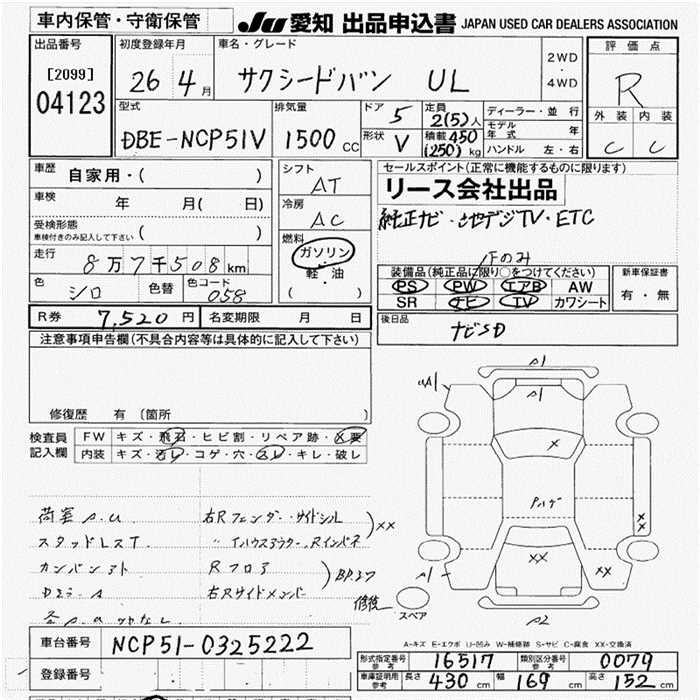 車内保管・守衛保管
JU 愛知 出品申込書 JAPAN USED CAR DEALERS ASSOCIATION
出品番号 初度登録年月 車名・グレード 2WD・4WD 評価点
[2099] 04123 26 4月 サクシードバン UL R
型式 排気量 ドア 5 定員 2(5)人 ディーラー・並行 外装 内装
DBE-NCP51V 1500cc 形状 V 積載 450 (250)kg モデル年式 年 C C
ハンドル 左・右
車歴 自家用・( ) シフト AT セールスポイント(正常に機能するものに限ります)
リース会社出品
車検 年 月( 日) 冷房 AC 純正ナビ・地デジTV・ETC
受検形態 車検付きのみ記入して下さい ( ) 燃料 ガソリン・軽・油 ( ) 1Fのみ
走行 8万7千508km 装備品(純正品に限り○をつけてください) 新車保証書
色 シロ 色替 色コード 058 PS PW エアB AW 有・無
SR ナビ TV カワシート
R券 7,520円 名変期限 月 日 後日品 ナビSD
注意事項申告欄(不具合内容等は具体的に記入して下さい)
修復歴 有 (箇所
検査員記入欄 FW キズ・飛石・ヒビ割・リペア跡・×要
内装 キズ・汚レ・コゲ・穴・スレ・キレ・破レ
A1
UA1
A1
×
Pハゲ
××
×× ××
A1
A2
スペア
荷室 A.U 右Rフェンダー・サイドシル ××
スタッドレスT 〃 Iハウスアウター、Rインパネ
カンバンアト Rフロア BP,27
右Rサイドメンバー 修後
A-キズ E-エクボ U-凹み W-補修跡 S-サビ C-腐食 XX-交換済
車台番号 NCP51-0325222
形式指定番号 参考 16517 類別区分番号 参考 0079
登録番号 車庫証明用 参考 長さ 430cm 幅 169cm 高さ 152cm